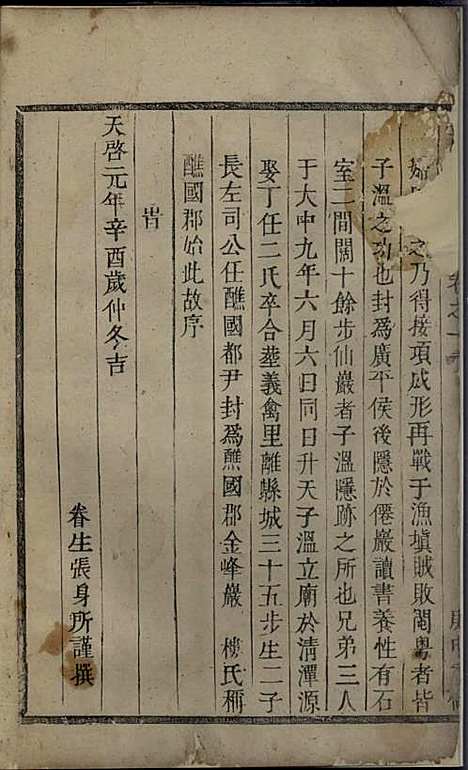 之乃得接項成形再戰于漁塡賊敗閩粤者皆
子溫之功也封爲廣平侯後隱於僊巖讀書養性有石
室二間闊十餘步仙巖者子溫隱跡之所也兄弟三人
于大中九年六月六日同日升天子溫立廟於清潭源
娶丁任二氏卒合葬義禽里離縣城三十五步生二子
長左司公任醮國都尹封爲醮國郡金峰嚴 樓氏稱
醮國郡始此故序
旹
天啓二元年辛酉歲仲冬吉
眷生張身所謹撰
卷之一